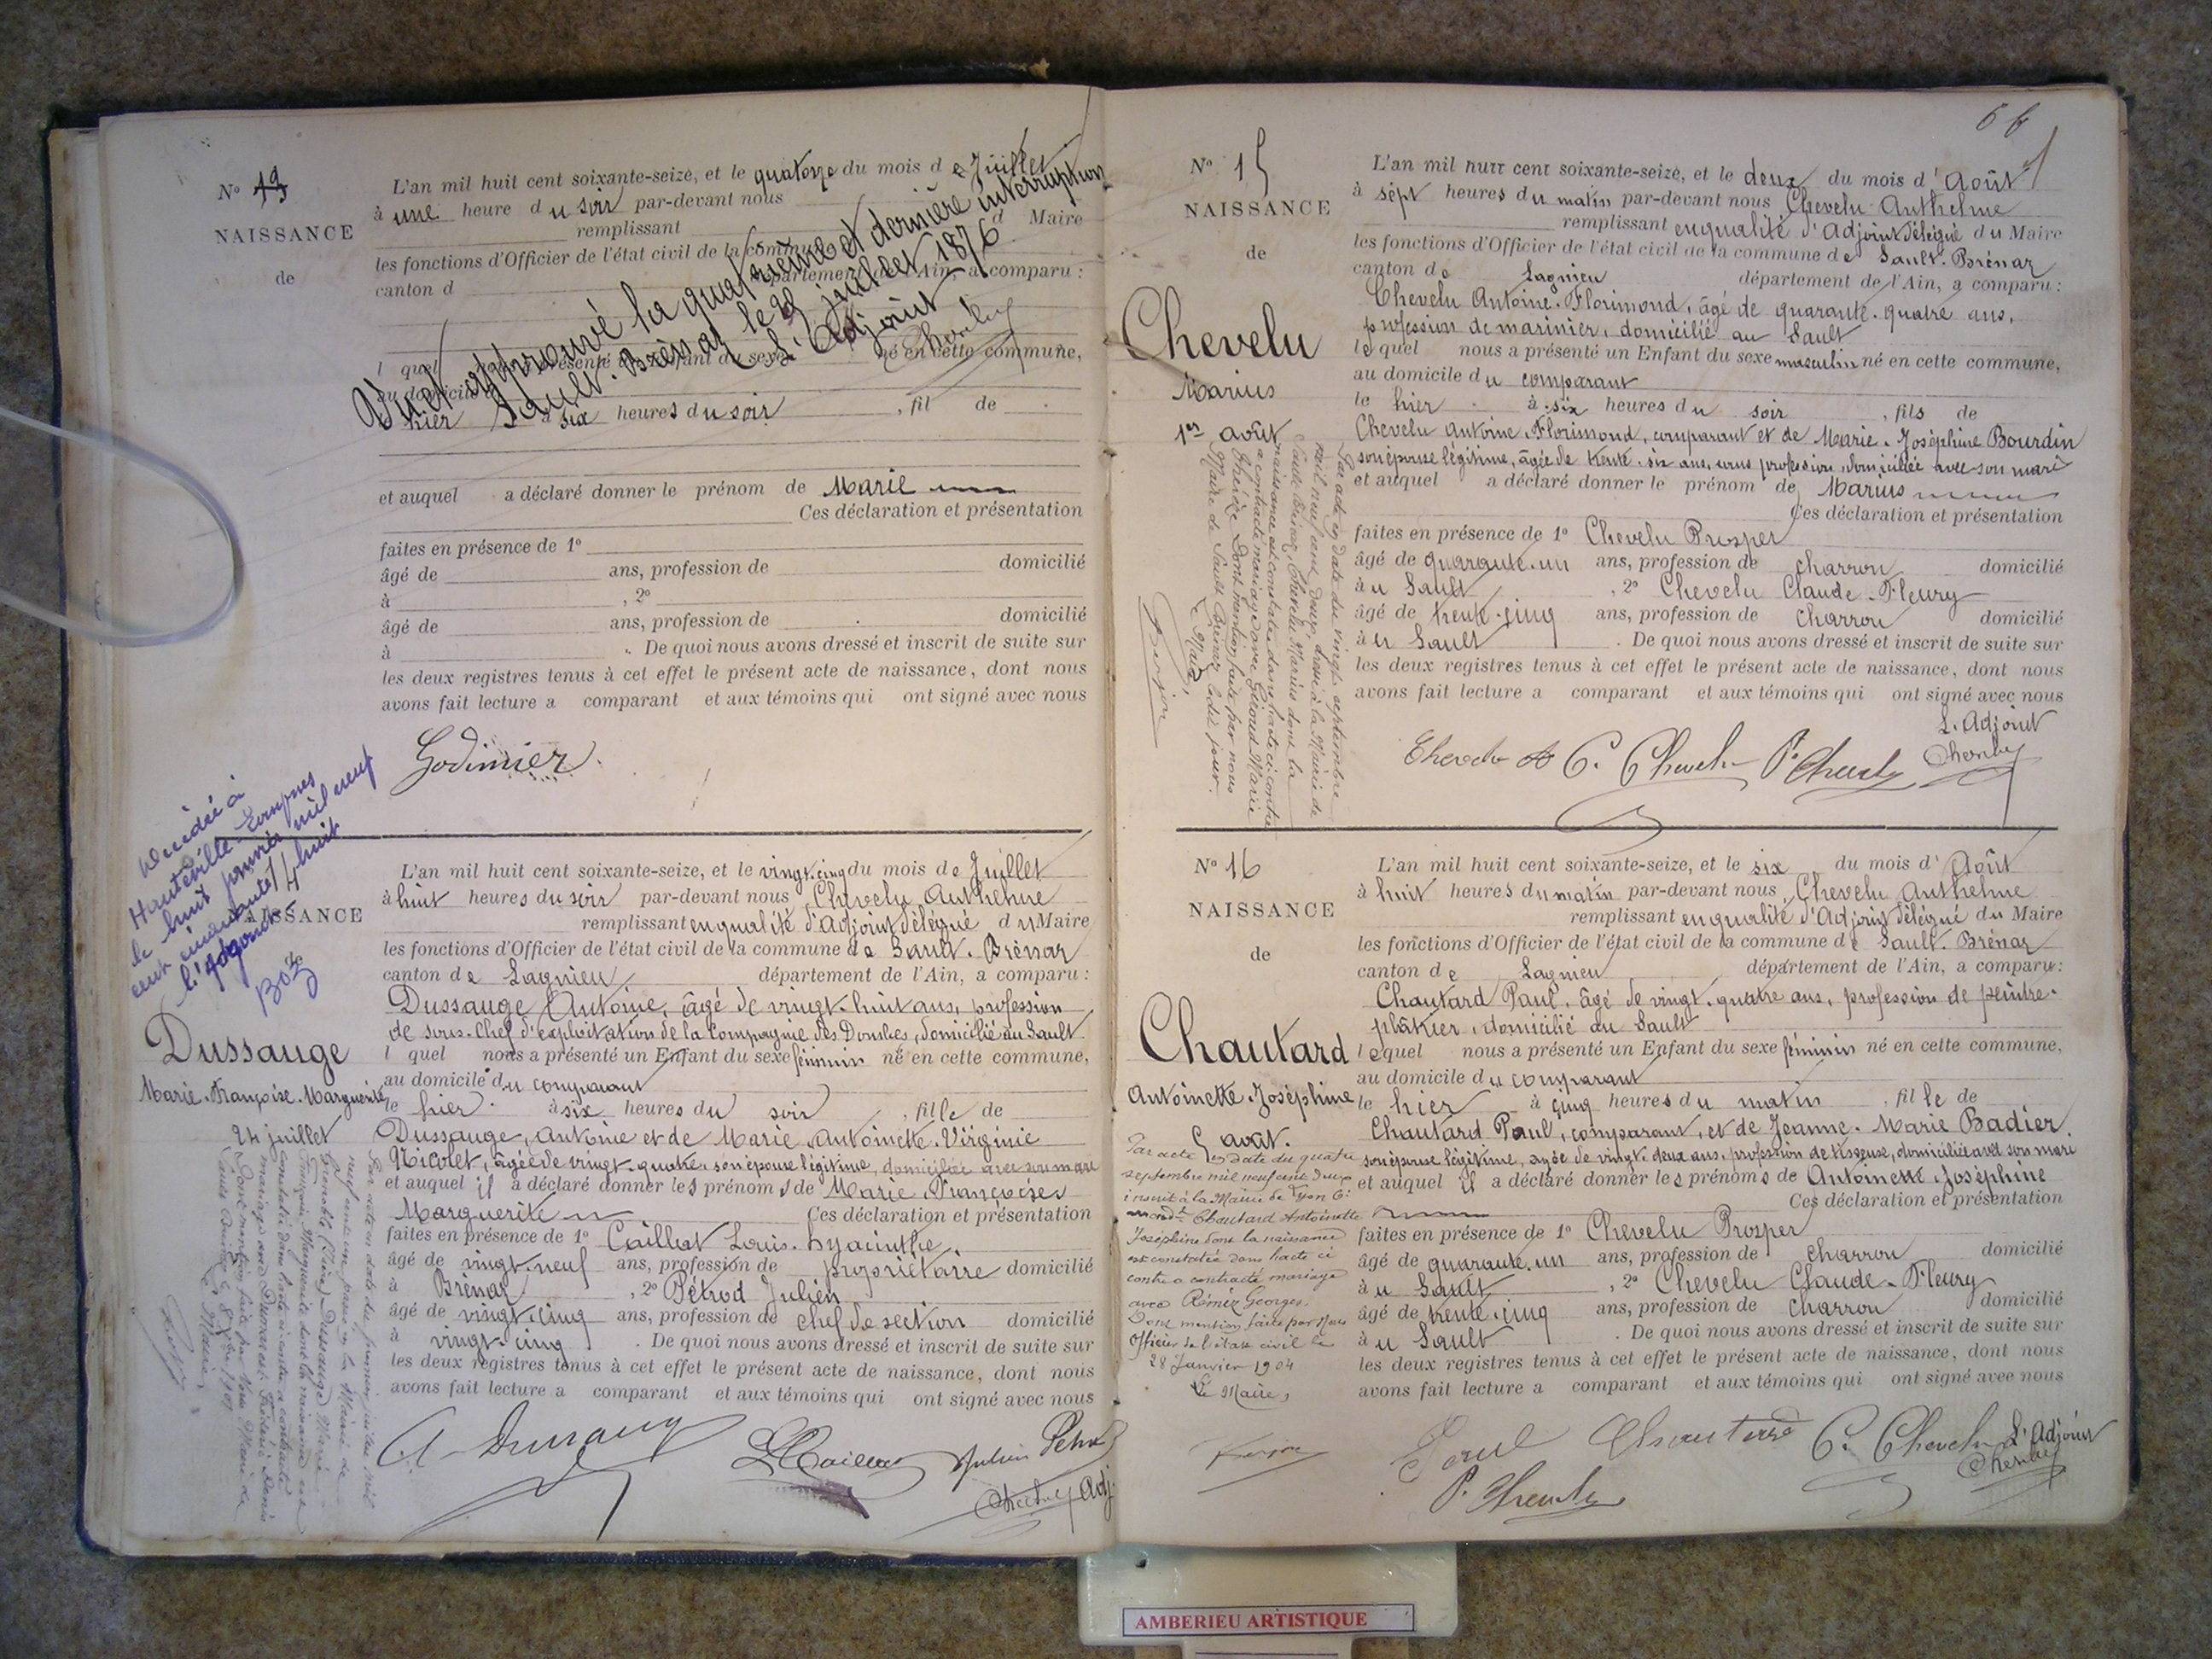 N° 13
NAISSANCE
de
L'an mil huit cent soixante-seize, et le quatorze du mois de Juillet
à une heure du soir par-devant nous
remplissant d Maire
les fonctions d'Officier de l'état civil de la commune
canton d département de l'Ain, a comparu :
Vu et approuvé la quatrième et dernière interruption
Sault-Brénaz le 21 juillet 1876
L'Adjoint
l quel nous a présenté un Enfant du sexe né en cette commune,
au domicile
hier à six heures du soir , fil de
et auquel a déclaré donner le prénom de Marie
Ces déclaration et présentation
faites en présence de 1°
âgé de ans, profession de domicilié
à , 2°
âgé de ans, profession de domicilié
à . De quoi nous avons dressé et inscrit de suite sur
les deux registres tenus à cet effet le présent acte de naissance, dont nous
avons fait lecture a comparant et aux témoins qui ont signé avec nous
Godinier
Décédée à
Hauteville-Lompnes
le huit janvier mil neuf
cent quarante huit
l'adjoint
NAISSANCE
Dussauge
Marie-Françoise-Marguerite
24 juillet
L'an mil huit cent soixante-seize, et le vingt-cinq du mois de Juillet
à huit heures du soir par-devant nous Chevelu Anthelme
remplissant en qualité d'Adjoint délégué du Maire
les fonctions d'Officier de l'état civil de la commune de Sault-Brénaz
canton de Lagnieu département de l'Ain, a comparu :
Dussauge Antoine, âgé de vingt-huit ans, profession
de sous-chef d'exploitation de la Compagnie des Dombes, domicilié au Sault
l quel nous a présenté un Enfant du sexe féminin né en cette commune,
au domicile du comparant
le hier à six heures du soir , fille de
Dussauge, Antoine et de Marie Antoinette-Virginie
Nicolet, âgée de vingt-quatre, son épouse légitime, domiciliée avec son mari
et auquel il a déclaré donner les prénoms de Marie Françoise
Marguerite Ces déclaration et présentation
faites en présence de 1° Caillat Louis-hyacinthe,
âgé de vingt-neuf ans, profession de propriétaire domicilié
à Brénaz , 2° Pétrod Julien
âgé de vingt-cinq ans, profession de chef de section domicilié
à vingt-cinq . De quoi nous avons dressé et inscrit de suite sur
les deux registres tenus à cet effet le présent acte de naissance, dont nous
avons fait lecture a comparant et aux témoins qui ont signé avec nous
66
N° 15
NAISSANCE
de
Chevelu
Marius
1er août
L'an mil huit cent soixante-seize, et le deux du mois d'Août
à sept heures du matin par-devant nous Chevelu Anthelme
remplissant en qualité d'Adjoint délégué du Maire
les fonctions d'Officier de l'état civil de la commune de Sault-Brénaz
canton de Lagnieu département de l'Ain, a comparu :
Chevelu Antoine-Florimond, âgé de quarante-quatre ans,
profession de marinier, domicilié au Sault
lequel nous a présenté un Enfant du sexe masculin né en cette commune,
au domicile du comparant
le hier à six heures du soir , fils de
Chevelu Antoine-Florimond, comparant et de Marie-Joséphine Bourdin
son épouse légitime, âgée de trente-six ans, sans profession, domiciliée avec son mari
et auquel a déclaré donner le prénom de Marius
Ces déclaration et présentation
faites en présence de 1° Chevelu Prosper
âgé de quarante-un ans, profession de charron domicilié
au Sault , 2° Chevelu Claude-Fleury
âgé de trente-cinq ans, profession de charron domicilié
au Sault . De quoi nous avons dressé et inscrit de suite sur
les deux registres tenus à cet effet le présent acte de naissance, dont nous
avons fait lecture a comparant et aux témoins qui ont signé avec nous
L'Adjoint
Par acte en date du vingt septembre
mil neuf cent deux, dressé à la Mairie de
Sault-Brénaz, Chevelu Marius dont la
naissance est constatée dans l'acte ci-contre
a contracté mariage avec Giroud Marie
Thérèze. Dont mention faite par nous
Maire de Sault-Brénaz, ledit jour.
Le Maire,
N° 16
NAISSANCE
de
Chautard
Antoinette-Joséphine
5 août.
Par acte en date du quatre
septembre mil neuf cent deux
inscrit à la Mairie de Lyon 6e
arrondt Chautard Antoinette
Joséphine dont la naissance
est constatée dans l'acte ci
contre a contracté mariage
avec Rémèz Georges.
Dont mention faite par Nous
Officier de l'état civil le
28 Janvier 1904
Le Maire,
L'an mil huit cent soixante-seize, et le six du mois d'Août
à huit heures du matin par-devant nous Chevelu Anthelme
remplissant en qualité d'Adjoint délégué du Maire
les fonctions d'Officier de l'état civil de la commune de Sault-Brénaz
canton de Lagnieu département de l'Ain, a comparu :
Chautard Paul, âgé de vingt-quatre ans, profession de peintre-
plâtrier, domicilié au Sault
lequel nous a présenté un Enfant du sexe féminin né en cette commune,
au domicile du comparant
le hier à cinq heures du matin , fille de
Chautard Paul, comparant, et de Jeanne-Marie Badier
son épouse légitime, agée de vingt-deux ans, profession de tisseuse, domiciliée avec son mari
et auquel il a déclaré donner les prénoms de Antoinette Joséphine
Ces déclaration et présentation
faites en présence de 1° Chevelu Prosper
âgé de quarante-un ans, profession de charron domicilié
au Sault , 2° Chevelu Claude-Fleury
âgé de trente-cinq ans, profession de charron domicilié
au Sault . De quoi nous avons dressé et inscrit de suite sur
les deux registres tenus à cet effet le présent acte de naissance, dont nous
avons fait lecture a comparant et aux témoins qui ont signé avec nous
Paul Chautard C. Chevelu L'Adjoint
P. Chevelu
AMBERIEU ARTISTIQUE